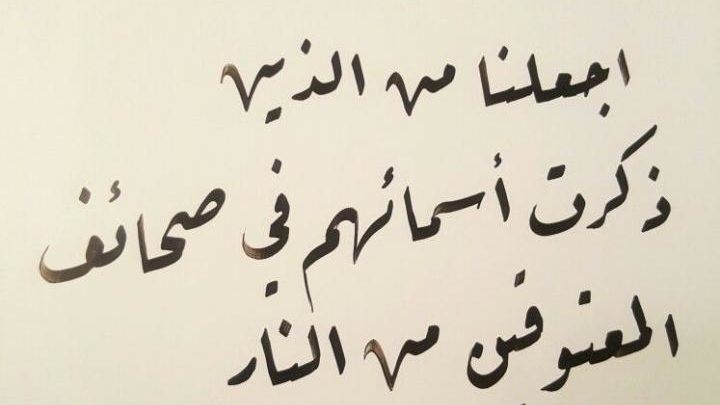 اجعلنا من الذين
ذكرت أسمائهم في صحائف
المعتوقين من النار